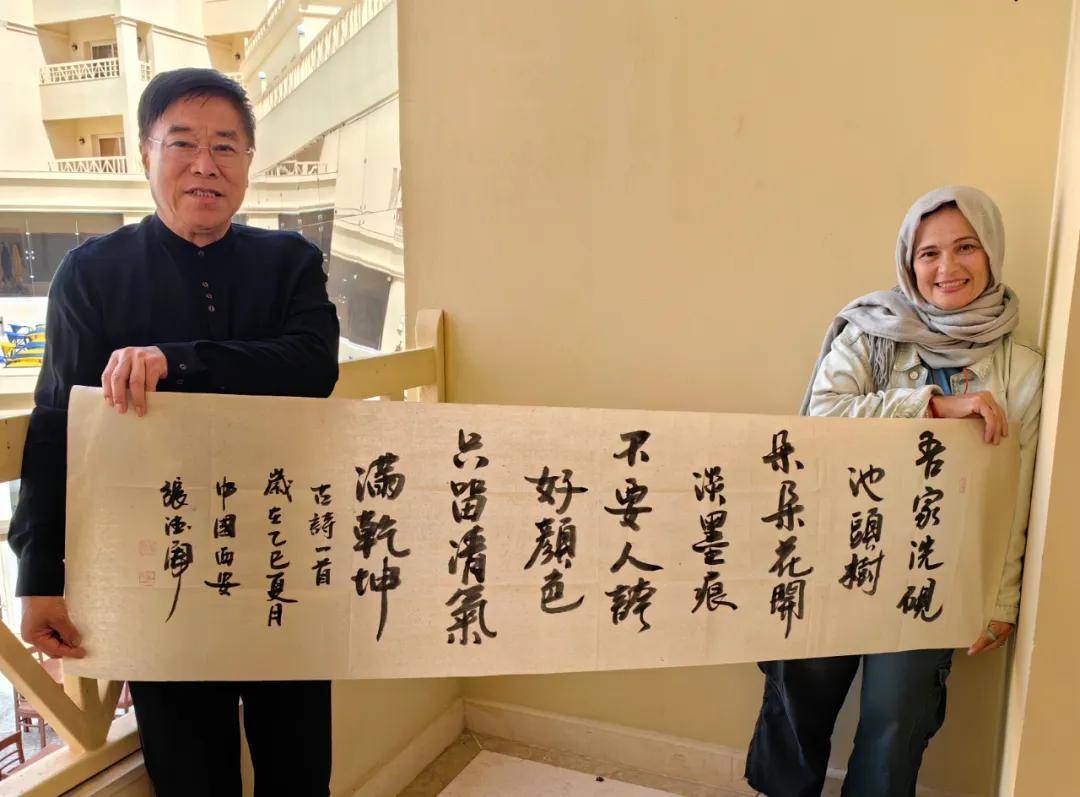 吾家洗硯
池頭樹
朵朵花開
淡墨痕
不要人誇
好顏色
只留清氣
滿乾坤
古詩一首
歲在乙巳夏月
中國西安